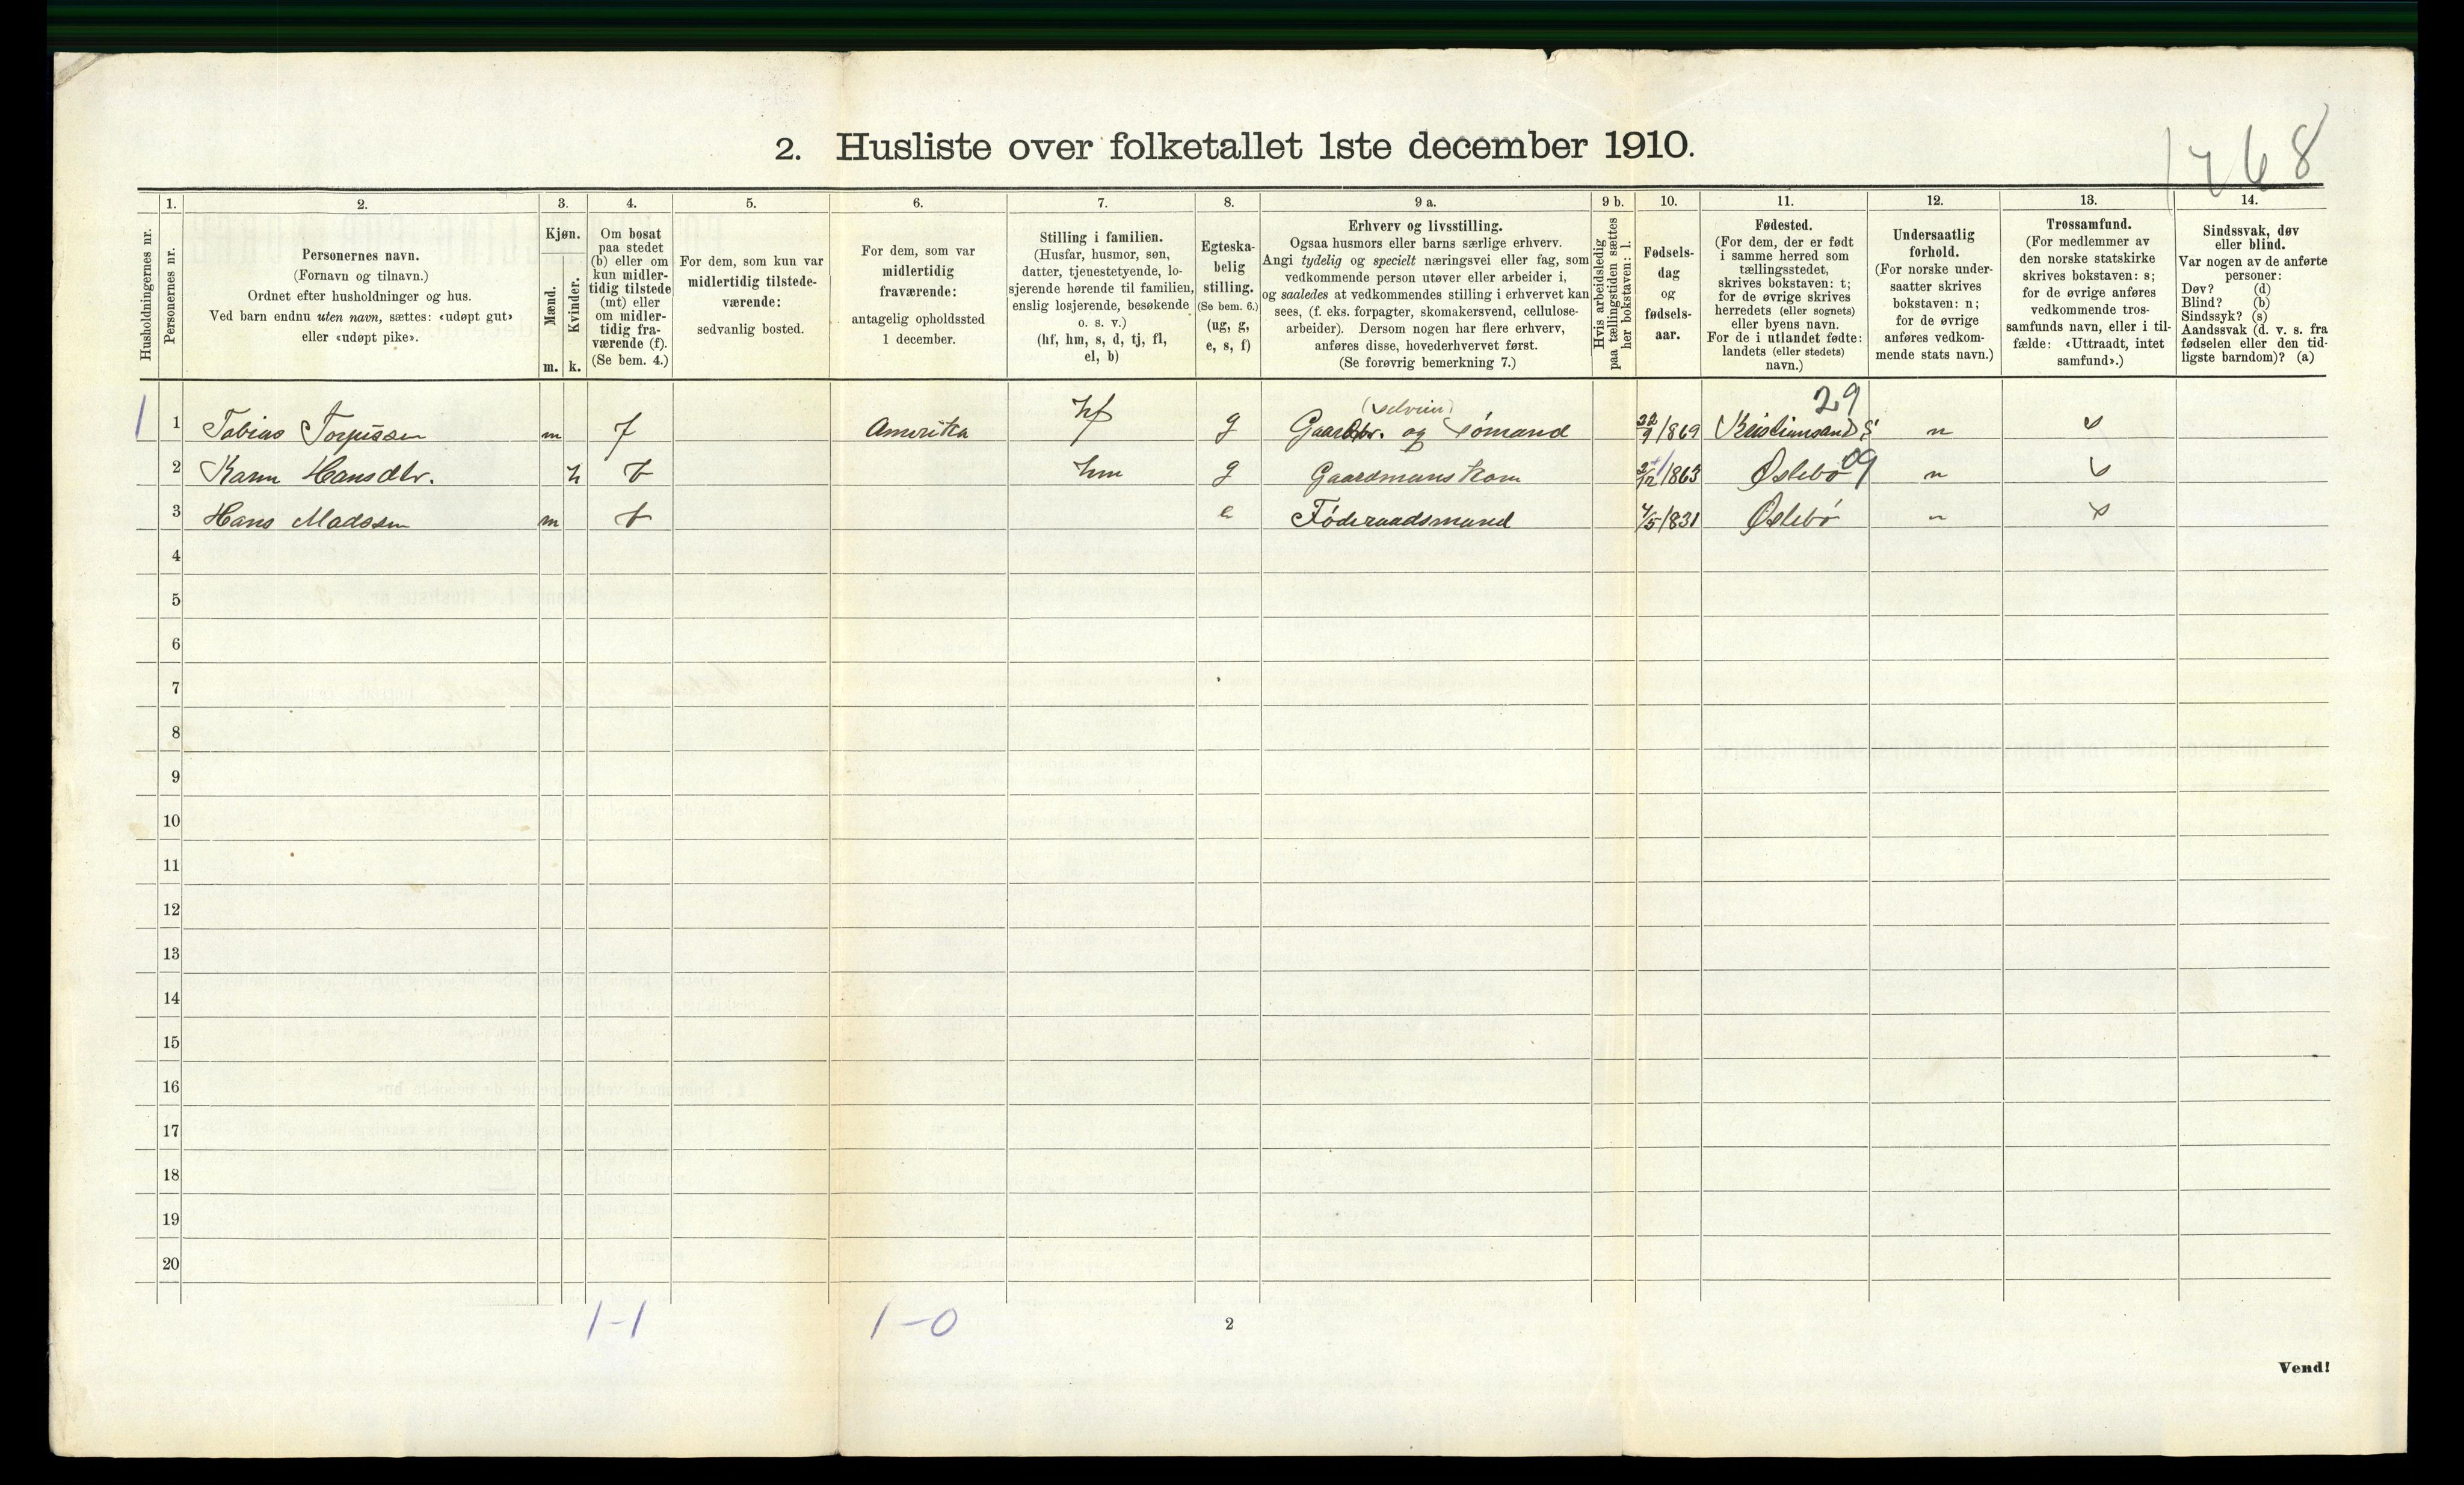 1768
2. Husliste over folketallet 1ste december 1910.
1. 2. 3. 4. 5. 6. 7. 8. 9 a. 9 b. 10. 11. 12. 13. 14.
Husholdningernes nr.
Personernes nr.
Personernes navn.
(Fornavn og tilnavn.)
Ordnet efter husholdninger og hus.
Ved barn endnu uten navn, sættes: «udøpt gut»
eller «udøpt pike».
Kjøn.
Mænd.
Kvinder.
m. k.
Om bosat
paa stedet
(b) eller om
kun midler-
tidig tilstede
(mt) eller
om midler-
tidig fra-
værende (f).
(Se bem. 4.)
For dem, som kun var
midlertidig tilstede-
værende:
sedvanlig bosted.
For dem, som var
midlertidig
fraværende:
antagelig opholdssted
1 december.
Stilling i familien.
(Husfar, husmor, søn,
datter, tjenestetyende, lo-
sjerende hørende til familien,
enslig losjerende, besøkende
o. s. v.)
(hf, hm, s, d, tj, fl,
el, b)
Egteska-
belig
stilling.
(Se bem. 6.)
(ug, g,
e, s, f)
Erhverv og livsstilling.
Ogsaa husmors eller barns særlige erhverv.
Angi tydelig og specielt næringsvei eller fag, som
vedkommende person utøver eller arbeider i,
og saaledes at vedkommendes stilling i erhvervet kan
sees, (f. eks. forpagter, skomakersvend, cellulose-
arbeider). Dersom nogen har flere erhverv,
anføres disse, hovederhvervet først.
(Se forøvrig bemerkning 7.)
Hvis arbeidsledig
paa tællingstiden sættes
her bokstaven: l.
Fødsels-
dag
og
fødsels-
aar.
Fødested.
(For dem, der er født
i samme herred som
tællingsstedet,
skrives bokstaven: t;
for de øvrige skrives
herredets (eller sognets)
eller byens navn.
For de i utlandet fødte:
landets (eller stedets)
navn.)
Undersaatlig
forhold.
(For norske under-
saatter skrives
bokstaven: n;
for de øvrige
anføres vedkom-
mende stats navn.)
Trossamfund.
(For medlemmer av
den norske statskirke
skrives bokstaven: s;
for de øvrige anføres
vedkommende tros-
samfunds navn, eller i til-
fælde: «Uttraadt, intet
samfund».)
Sindssvak, døv
eller blind.
Var nogen av de anførte
personer:
Døv? (d)
Blind? (b)
Sindssyk? (s)
Aandssvak (d. v. s. fra
fødselen eller den tid-
ligste barndom)? (a)
29
1 1 Tobias Torjussen m f Amerika hf g Gaardbr. og Sømand /1869 Kristiansand S. n s
2 Karen Hansdtr. k b hm g Gaardmanskone /1863 Øslebø 09 n s
3 Hans Madssen m b e Føderaadsmand 4/5 1831 Øslebø n s
4
5
6
7
8
9
10
11
12
13
14
15
16
17
18
19
20
1-1 1-0
2
Vend!